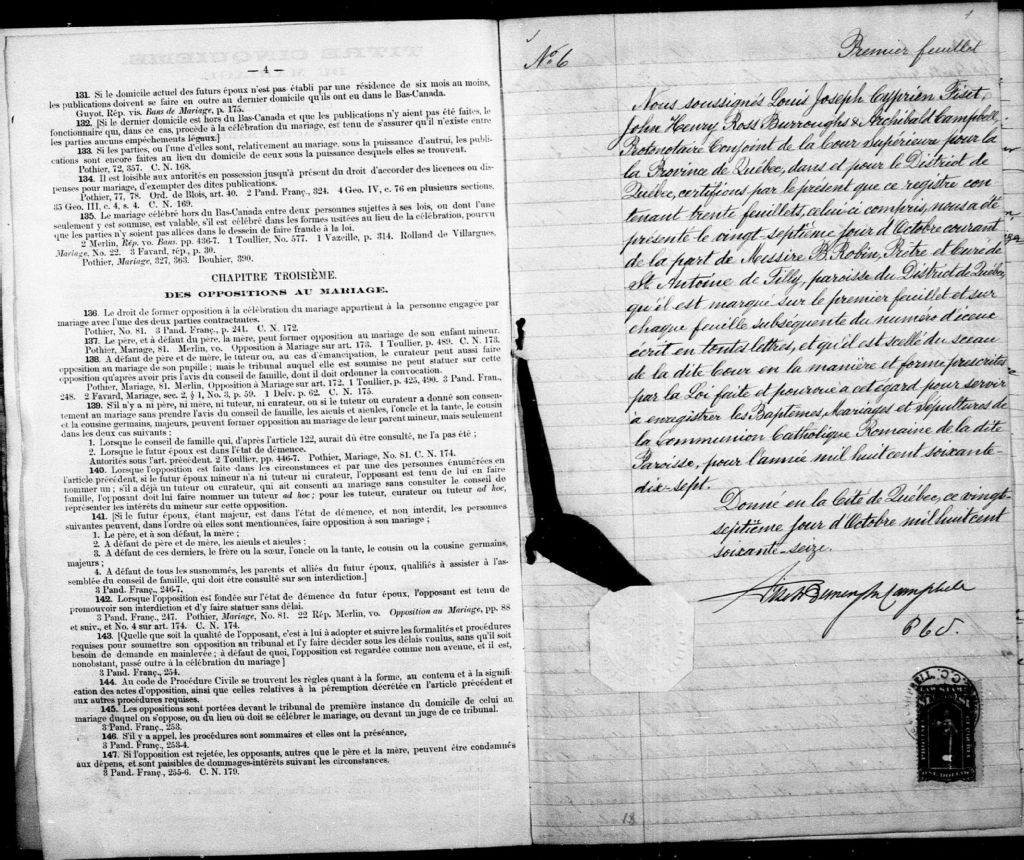 — 4 —
131. Si le domicile actuel des futurs époux n'est pas établi par une résidence de six mois au moins,
les publications doivent se faire en outre au dernier domicile qu'ils ont eu dans le Bas-Canada.
Guyot, Rép. vis. Bans de Mariage, p. 175.
132. [Si le dernier domicile est hors du Bas-Canada et que les publications n'y aient pas été faites, le
fonctionnaire qui, dans ce cas, procède à la célébration du mariage, est tenu de s'assurer qu'il n'existe entre
les parties aucuns empéchements légaux.]
133. Si les parties, ou l'une d'elles sont, relativement au mariage, sous la puissance d'autrui, les publi-
cations sont encore faites au lieu du domicile de ceux sous la puissance desquels elles se trouvent.
Pothier, 72, 357. C. N. 168.
134. Il est loisible aux autorités en possession jusqu'à présent du droit d'accorder des licences ou dis-
penses pour mariage, d'exempter des dites publications.
Pothier, 77, 78. Ord. de Blois, art. 40. 2 Pand. Franç., 324. 4 Geo. IV, c. 76 en plusieurs sections.
35 Geo. III, c. 4, s. 4. C. N. 169.
135. Le mariage célébré hors du Bas-Canada entre deux personnes sujettes à ses lois, ou dont l'une
seulement y est soumise, est valable, s'il est célébré dans les formes usitées au lieu de la célébration, pourvu
que les parties n'y soient pas allées dans le dessein de faire fraude à la loi.
2 Merlin, Rép. vo. Bans. pp. 436-7. 1 Toullier, No. 577. 1 Vazeille, p. 314. Rolland de Villargues,
Mariage, No. 22. 3 Favard, rép., p. 30.
Pothier, Mariage, 327, 363. Bouhier, 390.
CHAPITRE TROISIÈME.
DES OPPOSITIONS AU MARIAGE.
136. Le droit de former opposition à la célébration du mariage appartient à la personne engagée par
mariage avec l'une des deux parties contractantes.
Pothier, No. 81. 3 Pand. Franç., p. 241. C. N. 172.
137. Le père, et à défaut du père, la mère, peut former opposition au mariage de son enfant mineur.
Pothier, Mariage, 81. Merlin, vo. Opposition à Mariage sur art. 173. 1 Toullier, p. 489. C. N. 173.
138. A défaut de père et de mère, le tuteur ou, au cas d'émancipation, le curateur peut aussi faire
opposition au mariage de son pupille; mais le tribunal auquel elle est soumise ne peut statuer sur cette
opposition qu'après avoir pris l'avis du conseil de famille, dont il doit ordonner la convocation.
Pothier, Mariage, 81. Merlin, Opposition à Mariage sur art. 172. 1 Toullier, p. 425, 490. 3 Pand. Franç.,
248. 2 Favard, Mariage, sec. 2, § 1, No. 3, p. 59. 1 Delv. p. 62. C. N. 175.
139. S'il n'y a ni père, ni mère, ni tuteur, ni curateur, ou si le tuteur ou curateur a donné son consen-
tement au mariage sans prendre l'avis du conseil de famille, les aïeuls et aïeules, l'oncle et la tante, le cousin
et la cousine germains, majeurs, peuvent former opposition au mariage de leur parent mineur, mais seulement
dans les deux cas suivants;
1. Lorsque le conseil de famille qui, d'après l'article 122, aurait dû être consulté, ne l'a pas été;
2. Lorsque le futur époux est dans l'état de démence.
Autorités sous l'art. précédent. 2 Toullier, pp. 446-7. Pothier, Mariage, No. 81. C. N. 174.
140. Lorsque l'opposition est faite dans les circonstances et par une des personnes énumérées en
l'article précédent, si le futur époux mineur n'a ni tuteur ni curateur, l'opposant est tenu de lui en faire
nommer un; s'il a déjà un tuteur ou curateur, qui ait consenti au mariage sans consulter le conseil de
famille, l'opposant doit lui faire nommer un tuteur ad hoc; pour les tuteur, curateur ou tuteur ad hoc,
représenter les intérêts du mineur sur cette opposition.
141. [Si le futur époux, étant majeur, est dans l'état de démence, et non interdit, les personnes
suivantes peuvent, dans l'ordre où elles sont mentionnées, faire opposition à son mariage;
1. Le père, et à son défaut, la mère;
2. A défaut de père et de mère, les aïeuls et aïeules;
3. A défaut de ces derniers, le frère ou la sœur, l'oncle ou la tante, le cousin ou la cousine germains,
majeurs;
4. A défaut de tous les susnommés, les parents et alliés du futur époux, qualifiés à assister à l'as-
semblée du conseil de famille, qui doit être consulté sur son interdiction.]
3 Pand. Franç., 246-7.
142. Lorsque l'opposition est fondée sur l'état de démence du futur époux, l'opposant est tenu de
promouvoir son interdiction et d'y faire statuer sans délai.
3 Pand. Franç., 247. Pothier, Mariage, No. 81. 22 Rép. Merlin, vo. Opposition au Mariage, pp. 88
et suiv., et No. 4 sur art. 174. C. N. 174.
143. [Quelque soit la qualité de l'opposant, c'est à lui à adopter et suivre les formalités et procédures
requises pour soumettre son opposition au tribunal et l'y faire décider sous les délais voulus, sans qu'il soit
besoin de demande en mainlevée; à défaut de quoi, l'opposition est regardée comme non avenue, et il est,
nonobstant, passé outre à la célébration du mariage]
3 Pand. Franç., 254.
144. Au code de Procédure Civile se trouvent les règles quant à la forme, au contenu et à la signifi-
cation des actes d'opposition, ainsi que celles relatives à la péremption décrétée en l'article précédent et
aux autres procédures requises.
145. Les oppositions sont portées devant le tribunal de première instance du domicile de celui au
mariage duquel on s'oppose, ou du lieu où doit se célébrer le mariage, ou devant un juge de ce tribunal.
3 Pand. Franç., 253.
146. S'il y a appel, les procédures sont sommaires et elles ont la préséance,
3 Pand. Franç., 253-4.
147. Si l'opposition est rejetée, les opposants, autres que le père et la mère, peuvent être condamnés
aux dépens, et sont passibles de dommages-intérêts suivant les circonstances.
3 Pand. Franç., 255-6. C. N. 179.
No 6
Premier feuillet
Nous soussignés Louis Joseph Cyprien Fiset,
John Henry Ross Burroughs & Archibald Campbell,
Protonotaire Conjoint de la Cour Supérieure pour la
la Province de Québec, dans et pour le District de
Québec, certifions par le présent que ce registre con
tenant trente feuillets, celui-ci compris, nous a été
présenté le vingt-septième jour d'Octobre courant
de la part de Messire B. Robin, Prêtre et Curé de
St. Antoine de Tilly, paroisse du District de Québec,
qu'il est marqué sur le premier feuillet et sur
chaque feuille subséquente du numero d'iceux
écrit en toutes lettres, et qu'il est scellé du sceau
de la dite Cour en la manière et forme prescrites
par la Loi faite et pourvue à cet egard pour servir
à enregistrer les Baptêmes, Mariages et sépultures de
la Communion Catholique Romaine de la dite
Paroisse, pour l'année mil huit cent soixante-
dix-sept.
Donné en la Cité de Québec, ce vingt-
septième jour d'Octobre mil huit cent
soixante-seize.
Campbell
P C S.
LAW STAMP
ONE DOLLAR
18